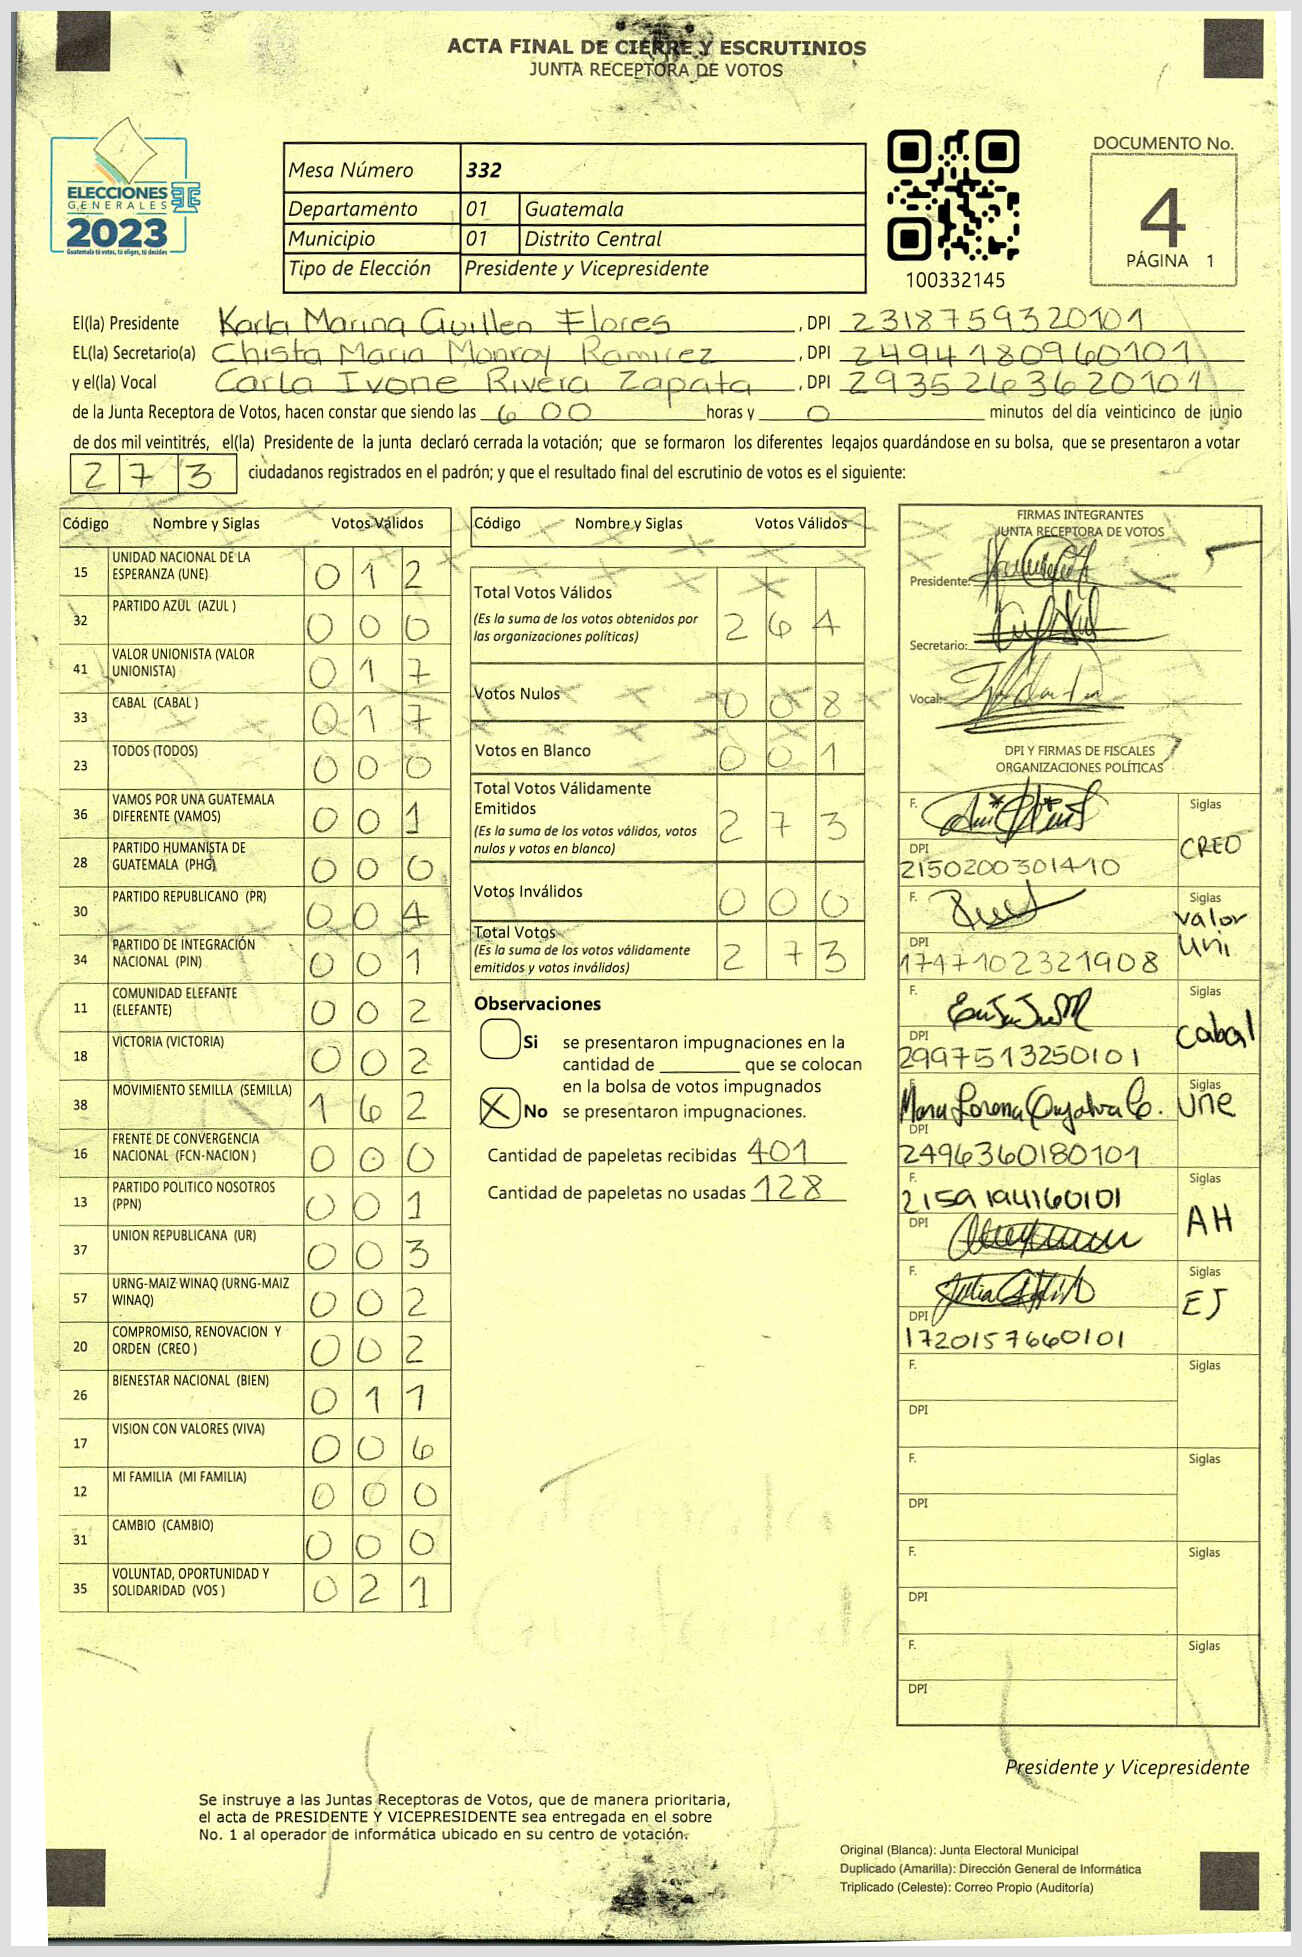 ACTA FINAL DE CIERRE Y ESCRUTINIOS
JUNTA RECEPTORA DE VOTOS
ELECCIONES
GENERALES
2023
Guatemala tú votas, tú eliges, tú decides
Mesa Número 332
Departamento 01 Guatemala
Municipio 01 Distrito Central
Tipo de Elección Presidente y Vicepresidente
100332145
DOCUMENTO No.
4
PÁGINA 1
El(la) Presidente Karla Marina Guillen Flores, DPI 2318759320101
EL(la) Secretario(a) Chista Maria Monroy Ramirez, DPI 2494180960101
y el(la) Vocal Carla Ivone Rivera Zapata, DPI 2935263620101
de la Junta Receptora de Votos, hacen constar que siendo las 6 00 horas y 0 minutos del día veinticinco de junio
de dos mil veintitrés, el(la) Presidente de la junta declaró cerrada la votación; que se formaron los diferentes legajos guardándose en su bolsa, que se presentaron a votar
273 ciudadanos registrados en el padrón; y que el resultado final del escrutinio de votos es el siguiente:
Código Nombre y Siglas Votos Válidos
15 UNIDAD NACIONAL DE LA ESPERANZA (UNE) 012
32 PARTIDO AZUL (AZUL ) 000
41 VALOR UNIONISTA (VALOR UNIONISTA) 017
33 CABAL (CABAL ) 017
23 TODOS (TODOS) 000
36 VAMOS POR UNA GUATEMALA DIFERENTE (VAMOS) 001
28 PARTIDO HUMANISTA DE GUATEMALA (PHG) 000
30 PARTIDO REPUBLICANO (PR) 004
34 PARTIDO DE INTEGRACIÓN NACIONAL (PIN) 001
11 COMUNIDAD ELEFANTE (ELEFANTE) 002
18 VICTORIA (VICTORIA) 002
38 MOVIMIENTO SEMILLA (SEMILLA) 162
16 FRENTE DE CONVERGENCIA NACIONAL (FCN-NACION ) 000
13 PARTIDO POLITICO NOSOTROS (PPN) 001
37 UNION REPUBLICANA (UR) 003
57 URNG-MAIZ WINAQ (URNG-MAIZ WINAQ) 002
20 COMPROMISO, RENOVACION Y ORDEN (CREO ) 002
26 BIENESTAR NACIONAL (BIEN) 011
17 VISION CON VALORES (VIVA) 006
12 MI FAMILIA (MI FAMILIA) 000
31 CAMBIO (CAMBIO) 000
35 VOLUNTAD, OPORTUNIDAD Y SOLIDARIDAD (VOS ) 021
Código Nombre y Siglas Votos Válidos
Total Votos Válidos 264
(Es la suma de los votos obtenidos por
las organizaciones políticas)
Votos Nulos 008
Votos en Blanco 001
Total Votos Válidamente
Emitidos 273
(Es la suma de los votos válidos, votos
nulos y votos en blanco)
Votos Inválidos 000
Total Votos 273
(Es la suma de los votos válidamente
emitidos y votos inválidos)
Observaciones
Si se presentaron impugnaciones en la
cantidad de ________ que se colocan
en la bolsa de votos impugnados
X No se presentaron impugnaciones.
Cantidad de papeletas recibidas 401
Cantidad de papeletas no usadas 128
FIRMAS INTEGRANTES
JUNTA RECEPTORA DE VOTOS
Presidente:
Secretario:
Vocal:
DPI Y FIRMAS DE FISCALES
ORGANIZACIONES POLÍTICAS
F. Siglas
CREO
DPI
2150200301410
F. Siglas
Valor
Uni
DPI
1747102321908
F. Siglas
Cabal
DPI
2997513250101
F. Siglas
Une
DPI
2496360180101
F. Siglas
AH
DPI
F. Siglas
EJ
DPI
1720157660101
F. Siglas
DPI
F. Siglas
DPI
F. Siglas
DPI
F. Siglas
DPI
Presidente y Vicepresidente
Se instruye a las Juntas Receptoras de Votos, que de manera prioritaria,
el acta de PRESIDENTE Y VICEPRESIDENTE sea entregada en el sobre
No. 1 al operador de informática ubicado en su centro de votación.
Original (Blanca): Junta Electoral Municipal
Duplicado (Amarilla): Dirección General de Informática
Triplicado (Celeste): Correo Propio (Auditoría)